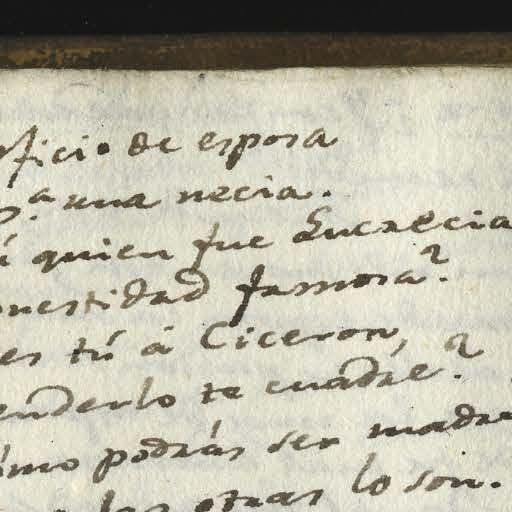 oficio de esposa
p.ª una necia.
quien fue Lucrecia
onestidad famosa?
es tú á Ciceron,
enderlo te cuadre?
ómo podrás ser madre
las otras lo son.